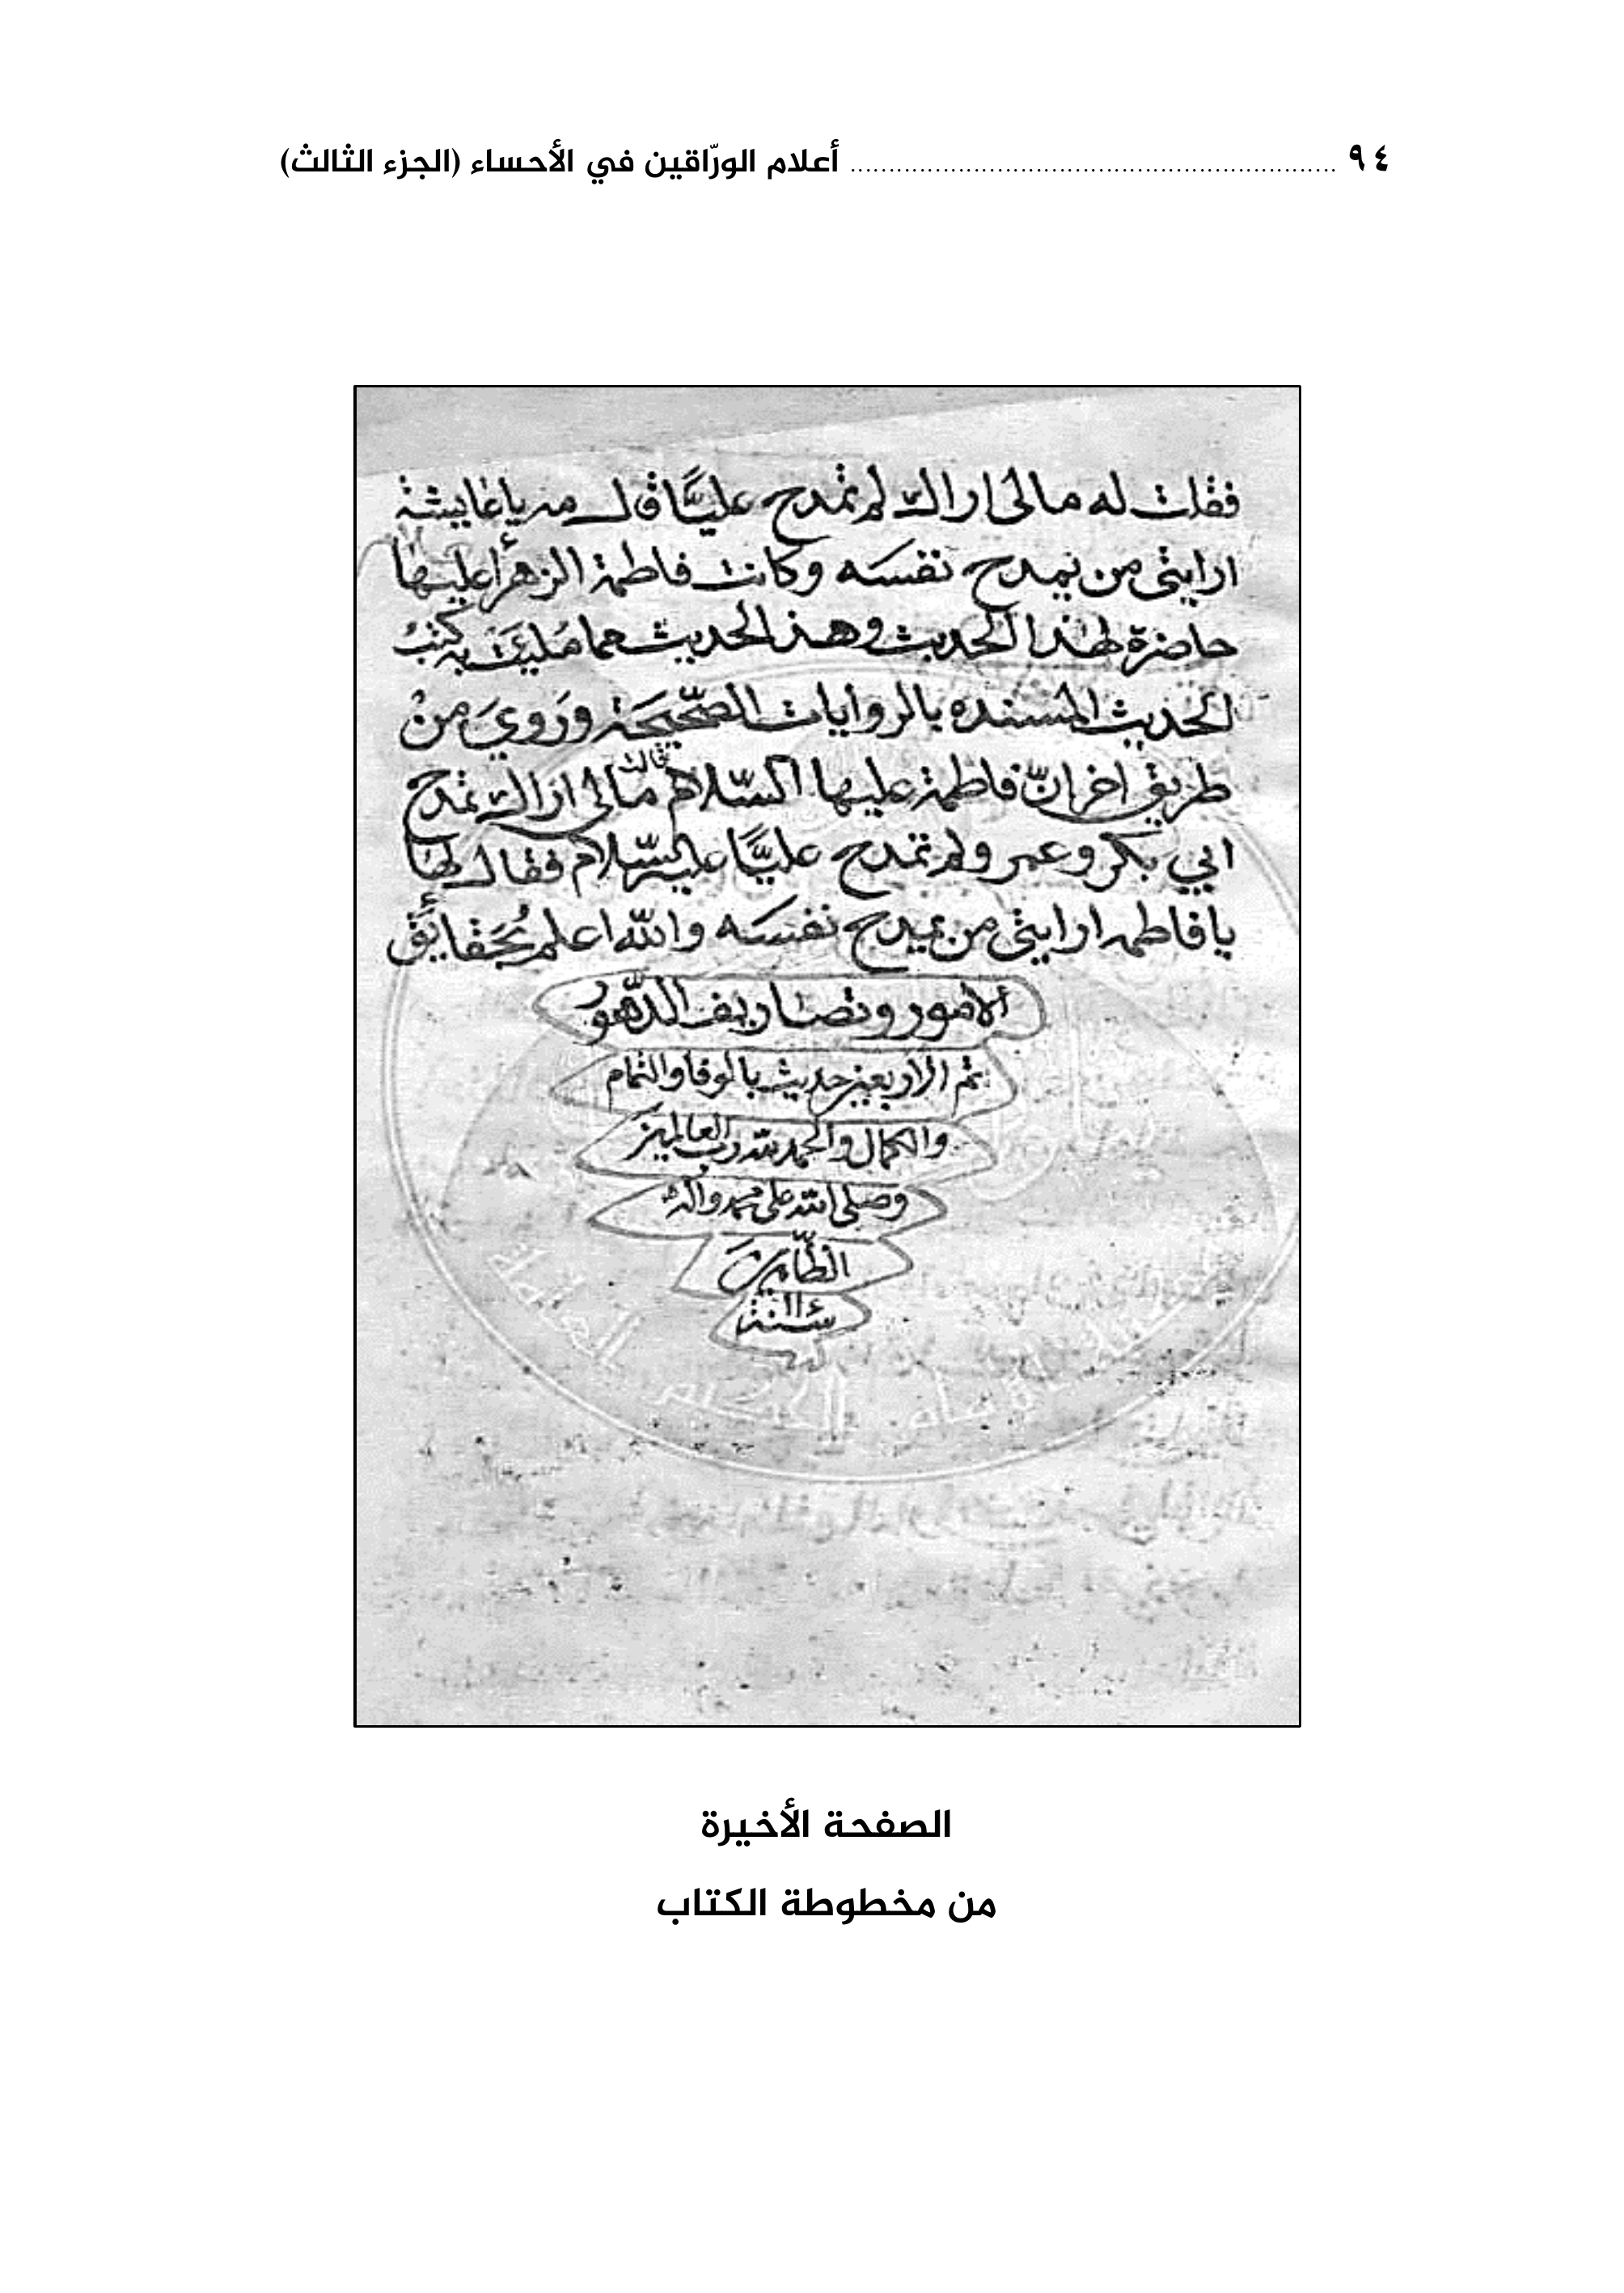 ٩٤ ................................................................ أعلام الورّاقين في الأحساء (الجزء الثالث)
فقلت له مالى اراك لم تمدح عليًّا قال مه يا عايشة
ارايتى من يمدح نفسَه وكانت فاطمة الزهرأ عليها
حاضرة لهذا الحديث وهذ الحديث مما مُليَت به كتبُ
الحديث المسنده بالروايات الصّحيحَة ورَويَ منْ
طريق اخر انّ فاطمة عليها السّلام قالت مالى اراك تمدح
ابي بكر وعمر ولم تمدح عليًّا عليه السّلام فقال لها
يا فاطمه ارايتى من يمدح نفسَه والله اعلم بحَقايَق
الامور وتصاريف الدّهور
تم الاربعين حديث بالوفا والتمام
والكمال والحمد لله رب العالمين
وصلى الله على محمد واله
الطّاهرين
سنة
الصفحة الأخيرة
من مخطوطة الكتاب